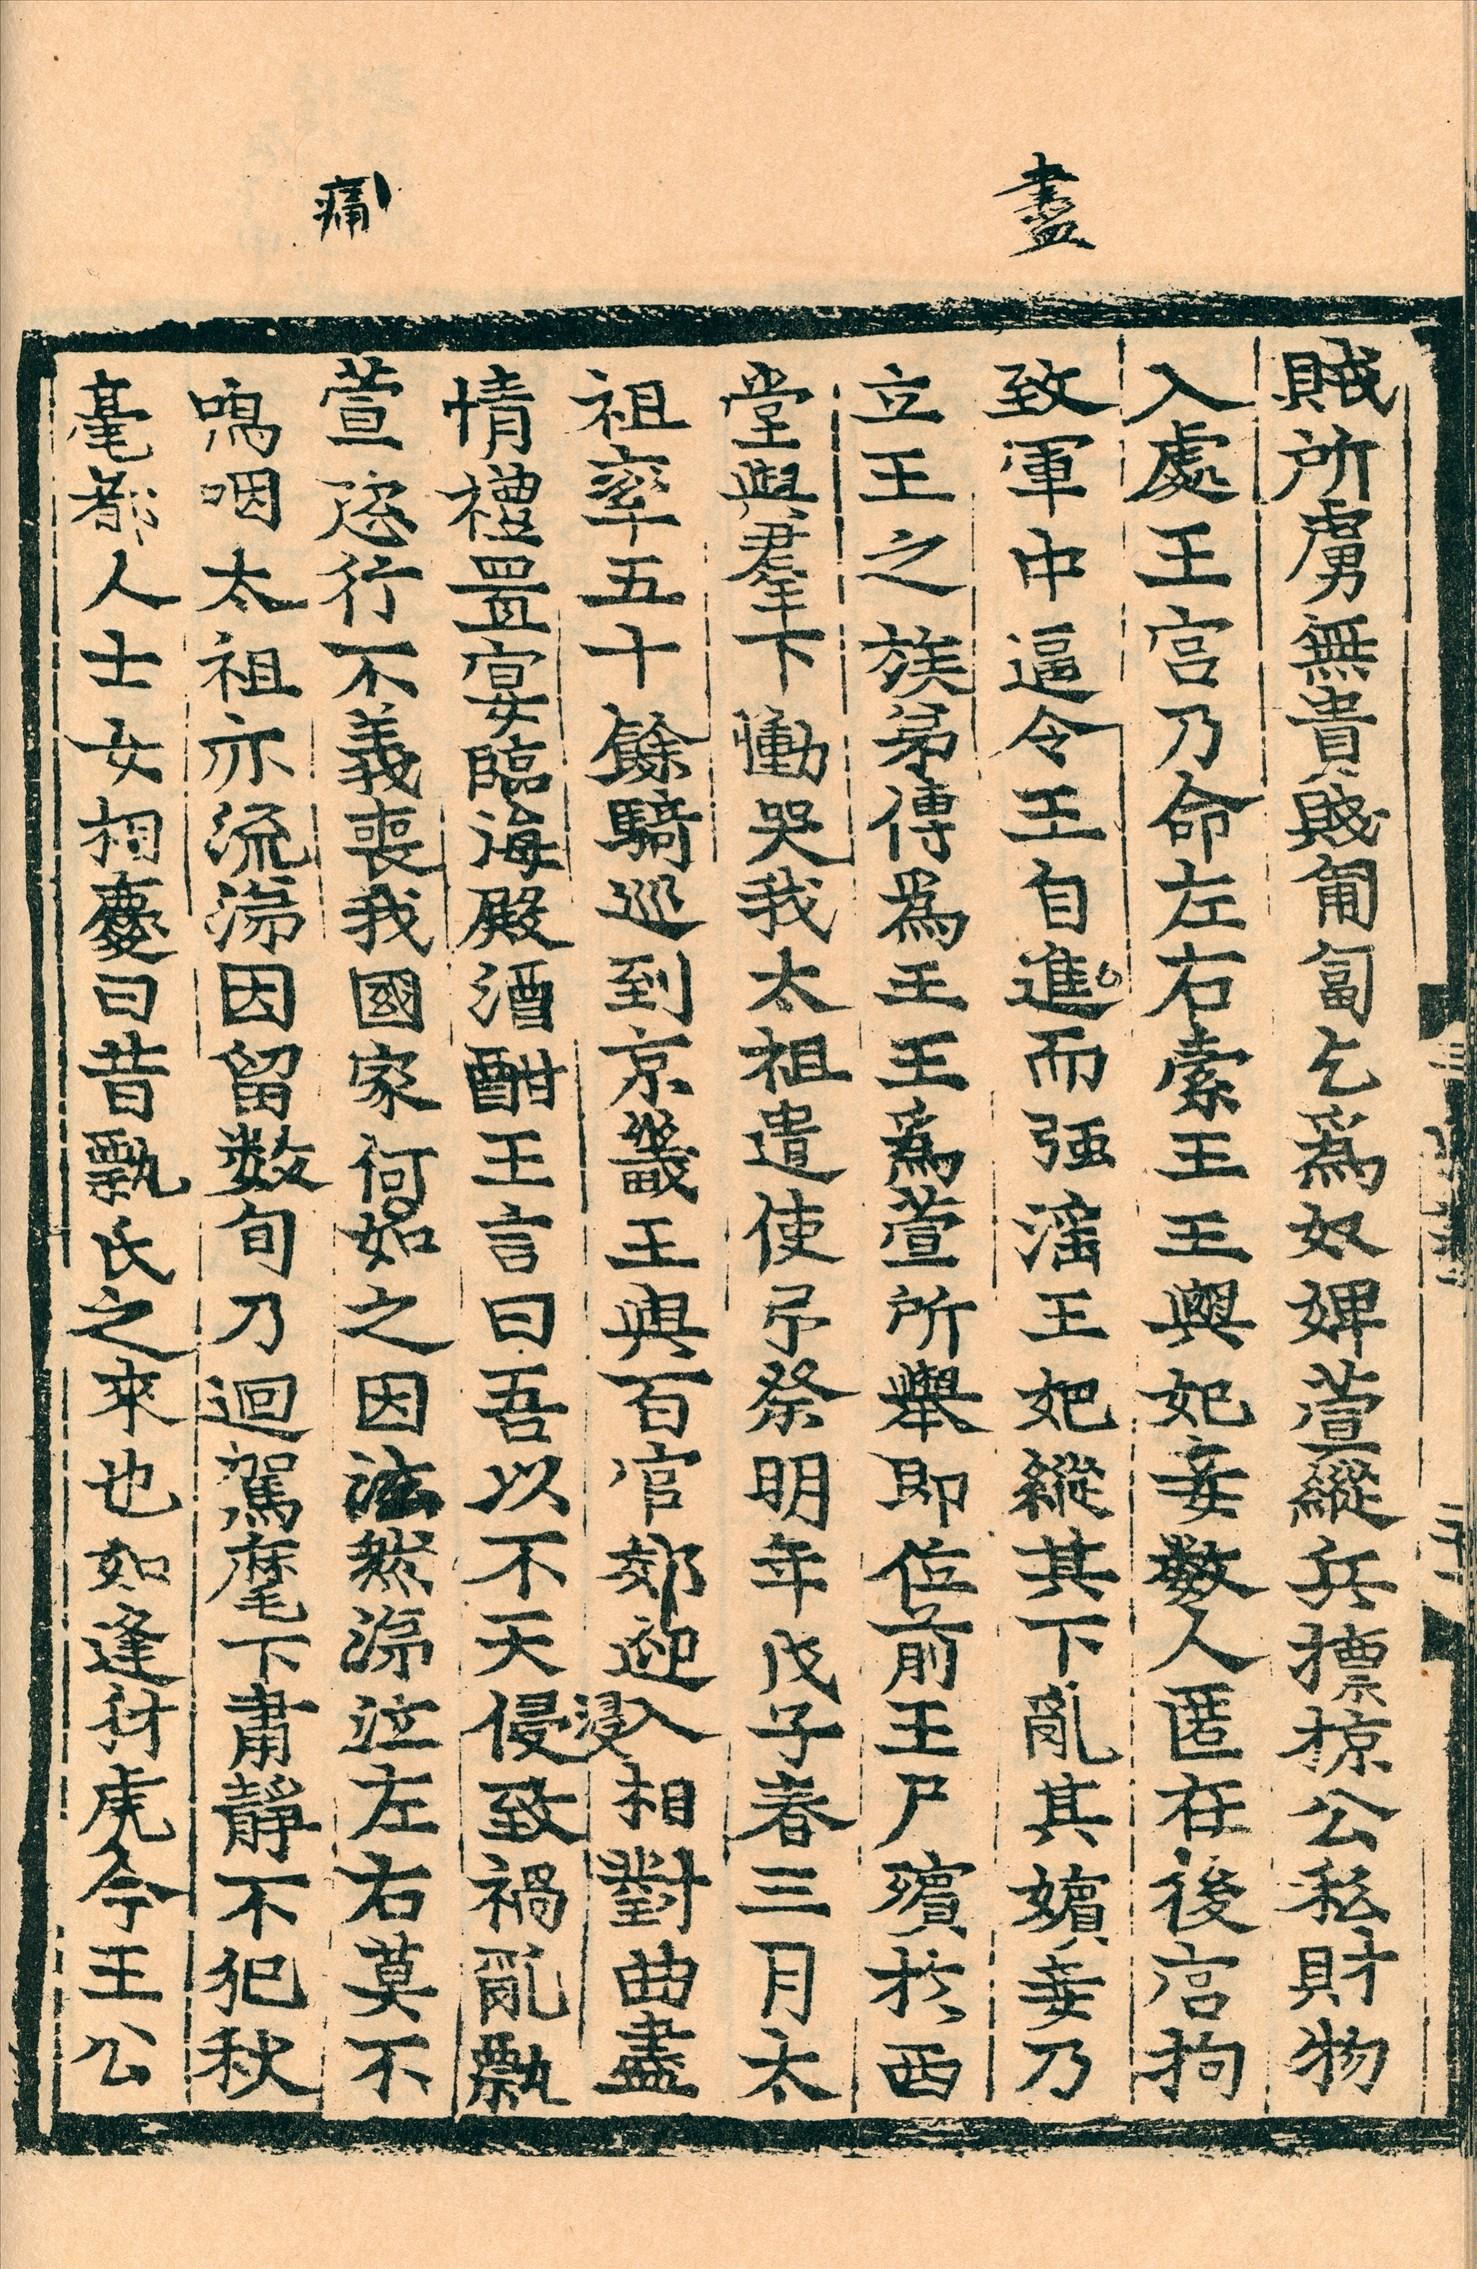 盡
痛
賊所虜無貴賤匍匐乞爲奴婢萱縱兵摽掠公私財物
入處王宮乃命左右索王王與妃妾數人匿在後宮拘
致軍中逼令王自進而强滛王妃縱其下亂其嬪妾乃
立王之族弟傅爲王王爲萱所舉即位前王尸殯於西
堂與羣下慟哭我太祖遣使弔祭明年戊子春三月太
祖率五十餘騎巡到京畿王與百官郊迎入相對曲盡
情禮置宴臨海殿酒酣王言曰吾以不天侵致禍亂甄
浸
萱恣行不義喪我國家何如之因泫然涕泣左右莫不
嗚咽太祖亦流涕因留数旬乃迴駕麾下肅靜不犯秋
毫都人士女相慶曰昔甄氏之來也如逢豺虎今王公